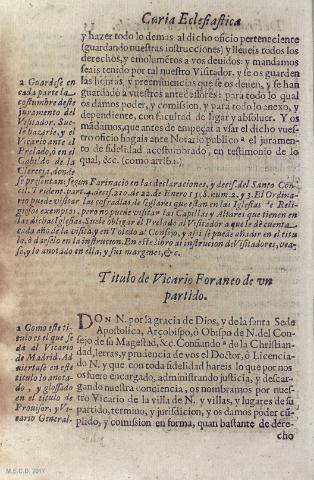 Curia Eclesiastica
y hazer todo lo demas al dicho oficio perteneciente
(guardando nuestras instrucciones) y lleueis todos los
derechos, y emolumẽtos a vos deuidos: y mandamos
seais tenido por tal nuestro Visitador, y se os guarden
las honras, y preeminencias que se os deuen, y se han
guardado a vuestros antecessores: para todo lo qual
os damos poder, y comission, y para todo lo anexo, y
dependiente, con facultad de ligar y absoluer. Y os
mãdamos, que antes de empeçar a vsar el dicho vues-
tro oficio hagais ante Notario publico el juramen-
to de fidelidad acostumbrado, en testimonio de lo
qual, &c. (como arriba.)
2 Guardese en
cada parte la
costumbre deste
juramento del
Visitador. Sue-
le hazerle, y el
Vicario ante el
Prelado, ò en el
Cabildo de la
Clerezia, donde
se presentan, segun Farinacio en las declaraciones, y decis. del Santo Con-
cil. Trident. part. 4. decis. 210. de 22. de Enero 158. num. 2. y 3. El Ordina-
rio puede visitar las cofradias de seglares que estan en las Iglesias de Reli-
giosos exemptos, pero no puede visitar las Capillas y Altares que tienen en
las dichas Iglesias. Suele obligar el Prelado al Visitador a que le dè cuenta
cada año de la visita, y en Toledo al Consejo, y assi se puede añadir en el titu
lo, ò darselo en la instruccion. En este libro ai instruccion de Visitadores, vea-
se, y lo anotado en ella, y sus margenes, &c.
Titulo de Vicario Foraneo de vn
partido.
1 Como este ti-
tulo es el que se
da al Vicario
de Madrid. Ad
uiertase en este
titulo lo anota-
do, y glossado
en el titulo de
Prouisor, y Vi-
cario General.
DON N. por la gracia de Dios, y de la santa Sede
Apostolica, Arçobispo, ò Obispo de N. del Con-
sejo de su Magestad, &c. Confiando de la Christian-
dad, letras, y prudencia de vos el Doctor, ò Licencia-
do N. y que con toda fidelidad hareis lo que por nos
os fuere encargado, administrando justicia, y descar-
gando nuestra conciencia, os nombramos por nues-
tro Vicario de la villa de N. y villas, y lugares de su
partido, termino, y jurisdicion, y os damos poder cũ-
plido, y comission en forma, quan bastante de dere-
cho
M.E.C.D. 2017